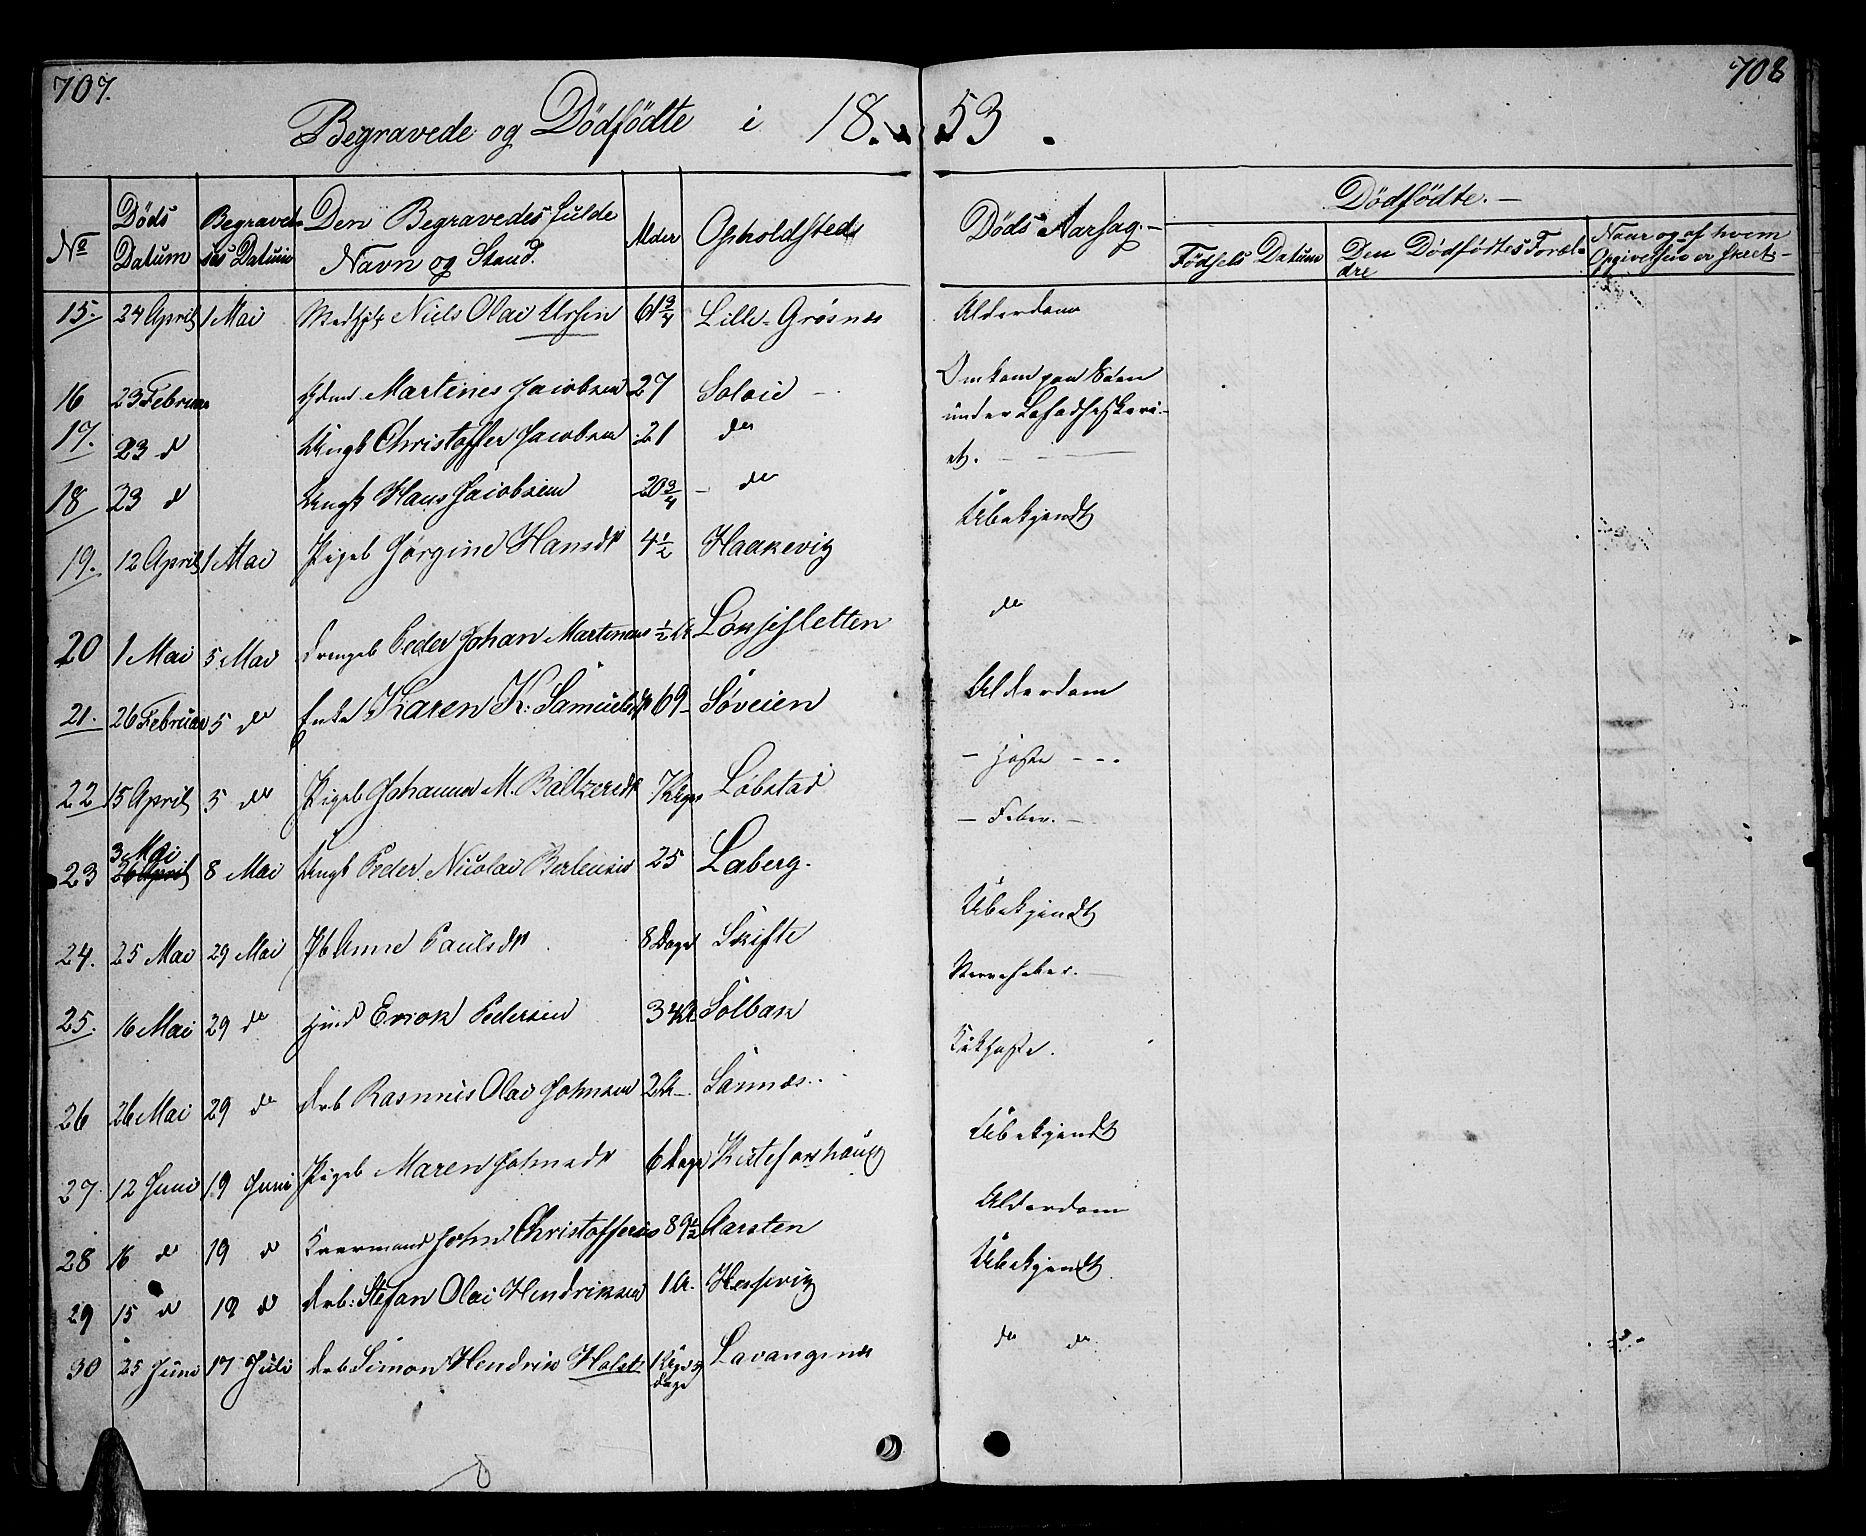 707.
708
Begravede og Dödfödte i 18 53.
No
Døds Datum
Begravelses Datum
Den Begravedes fulde Navn og Stand.
Alder
Opholdsted
Døds Aarsag.
Dödfödte.
Födsels Datum
Den Dödfödtes Forældre
Naar og af hvem Opgivelsen er skeet
15. 24 April 1 Mai Niels Olai Ursin 61 3/4 Lille-Grøsnæs Alderdom
16 23 Februar Martines Jacobsen 27 Soløie Omkom paa Søen
17. 23 d Ungk Christoffer Jacobsen 21 do under
18 23 d Ungk Hans Jacobsen 20 3/4 do
19. 12 April 1 Mai Pigeb Jørgine Hansdr 4 1/2 Haakevig Ubekjendt
20 1 Mai 5 Mai Drengeb Peder Johan 1/2 Løksesletten do
21. 26 Februar 5 do Enke Karen K: Samuelsdr 69 Søveien Alderdom
22 15 April 5 do Pigeb Johanna M. Baltzersdr 7 Løbstad Hoste
23 3 Mai 26 April 8 Mai Ungk Peder Nicolai 25 Laberg. Feber.
24. 25 Mai 29 Mai Pb Anne Paulsdr 8 Dage Skifte Ubekjendt
25. 16 Mai 29 do Erick Pedersen Solbak
26 26 Mai 29 do Drb Rasmus Olai Johnsen 2 Sannæs
27. 12 Juni 19 Juni Pigeb Maren Johnsdr 6 Dage Ubekjendt
28 16 d 19 d John Christoffersen 89 1/2 Aarsten Alderdom
29 15 d 19 d Drb: Stefan Olai Hendriksen 1 Ubekjendt
30 25 Juni 17 Juli Drb Simon Hendrik Holst Dage Lavangsnæs do do